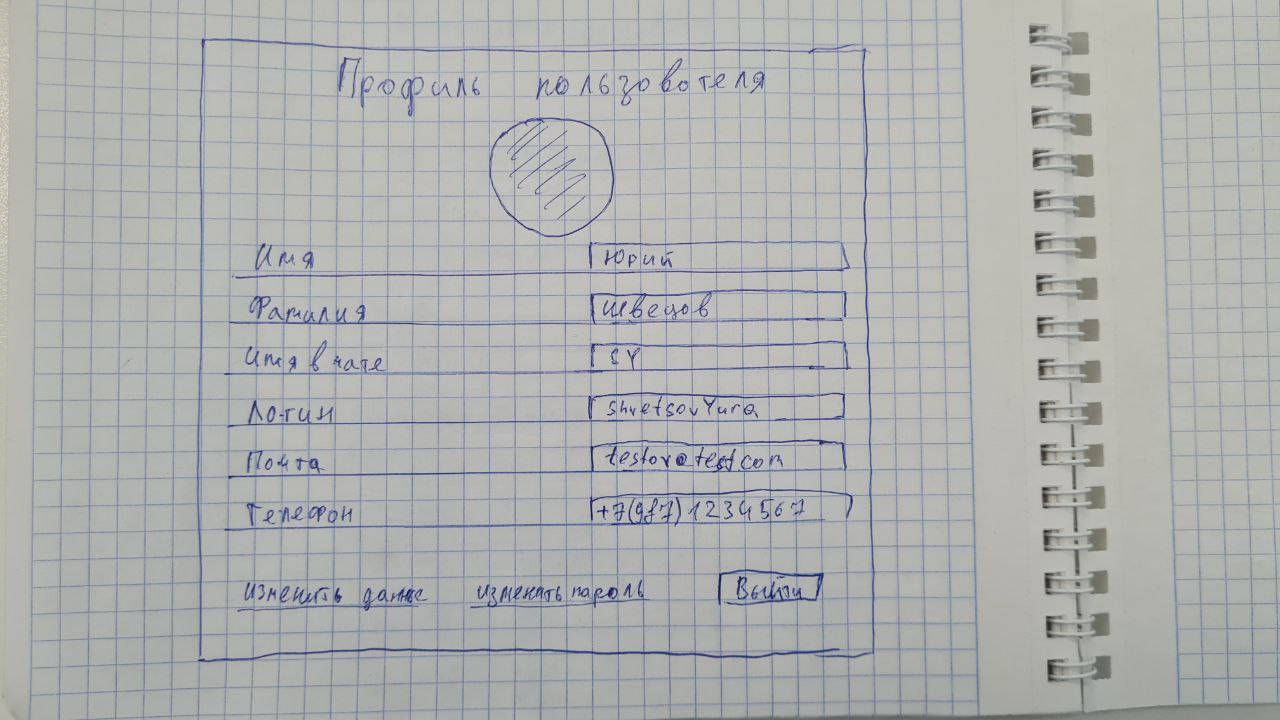 Профиль пользователя
Имя Юрий
Фамилия Швецов
Имя в чате SY
Логин ShvetsovYura
Почта
Телефон +7(987)1234567
изменить данные изменить пароль Выйти